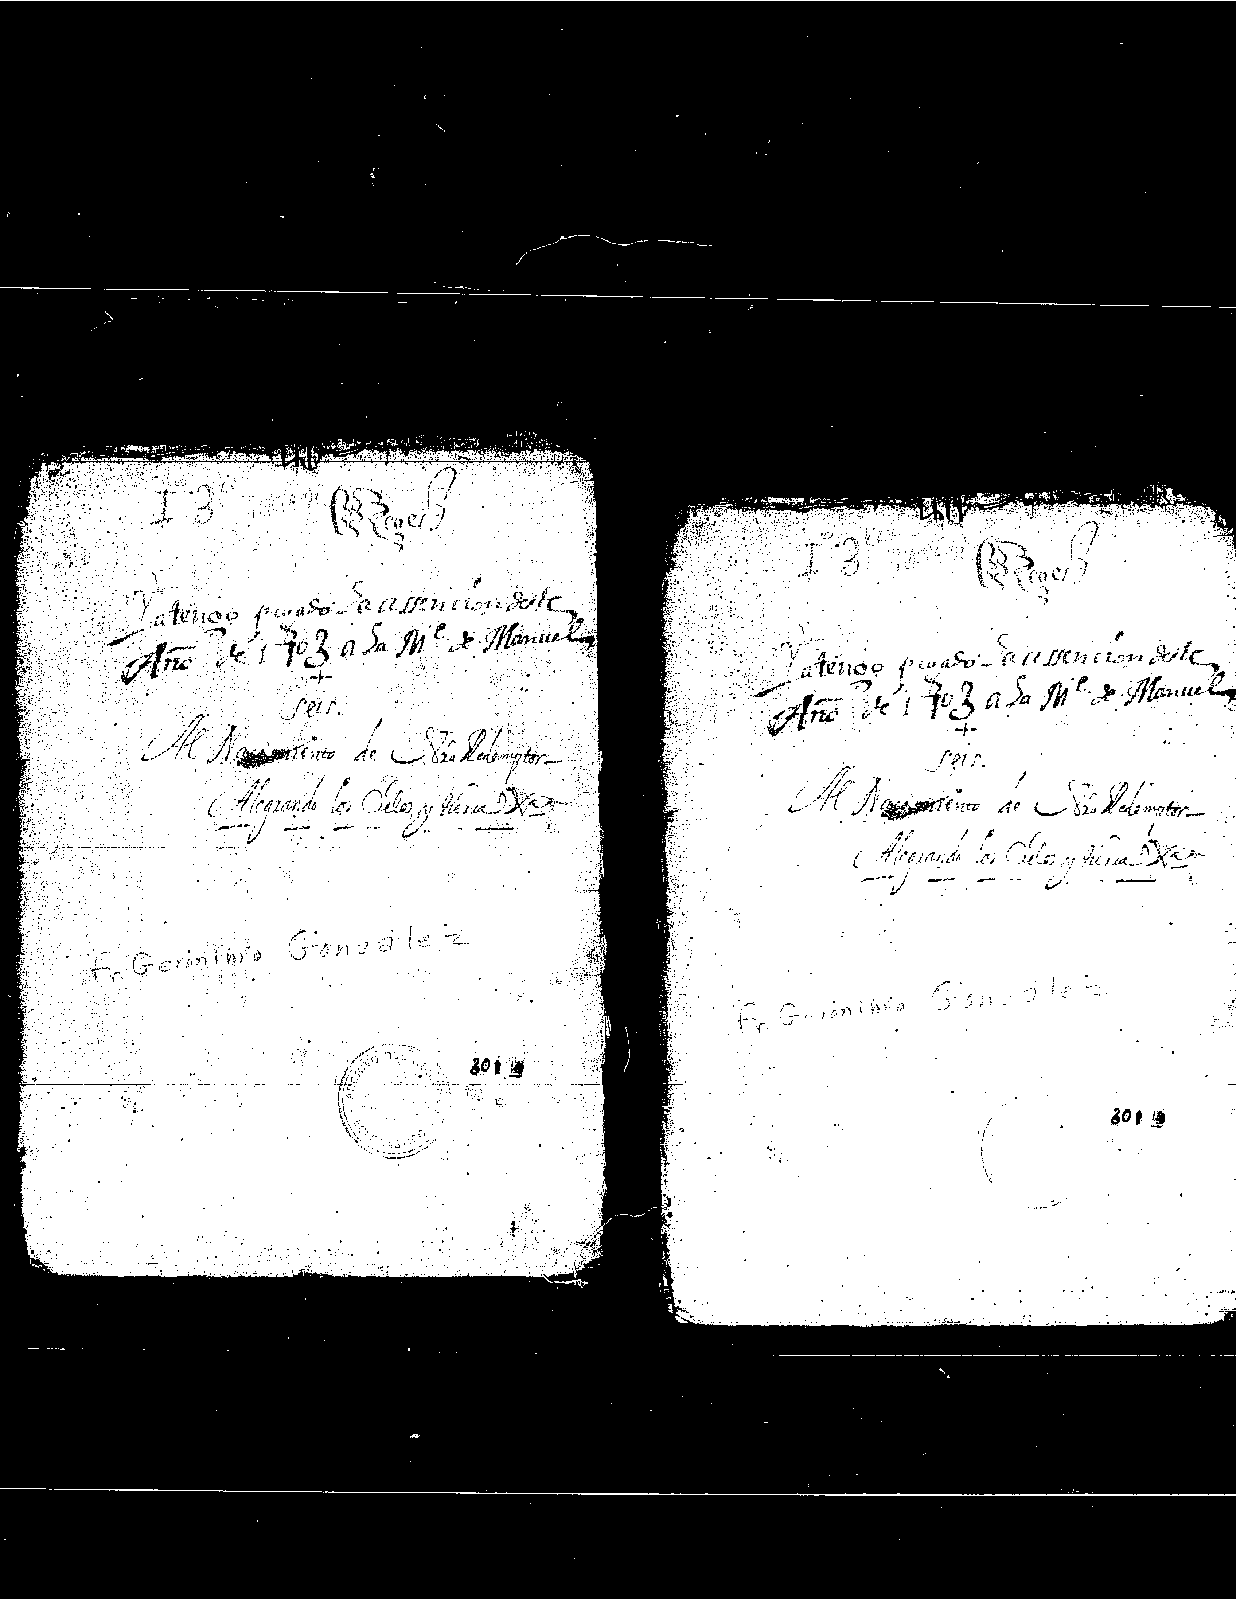 Reyes
Ya tengo pagado la assención deste
Año de 1703 a la Me de Manuel
seis.
Al Nacimiento de Nro Redemptor
Alegrando los Cielos y tierra
Fr Gerónimo González
301
Reyes
Ya tengo pagado la assención deste
Año de 1703 a la Me de Manuel
seis.
Al Nacimiento de Nro Redemptor
Alegrando los Cielos y tierra
Fr Gerónimo González
301